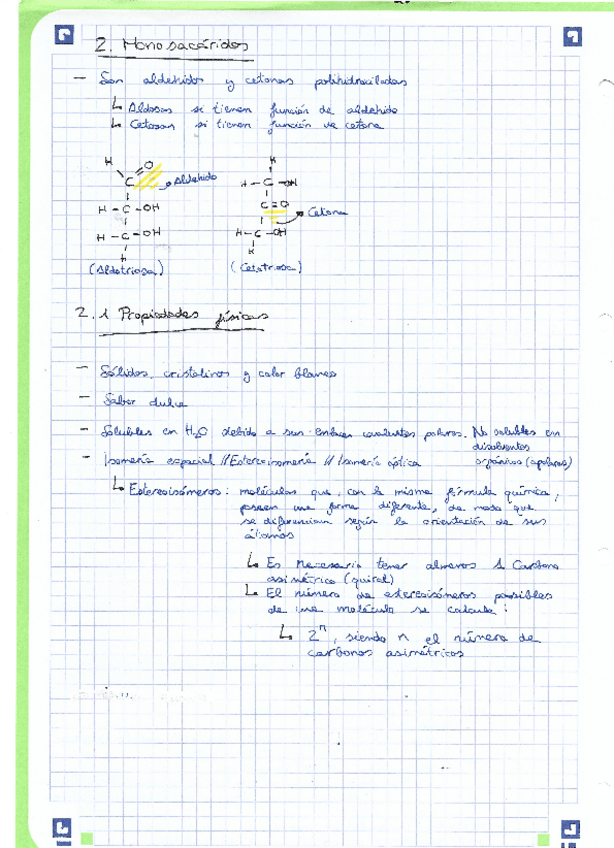 2. Monosacáridos
– Son aldehidos y cetonas polihidroxiladas
↳ Aldosas si tienen función de aldehido
↳ Cetosas si tienen función de cetona
H O
C → Aldehido
H – C – OH
H – C – OH
H
(Aldotriosa)
H
H – C – OH
C = O → Cetona
H – C – OH
H
(Cetotriosa)
2.1 Propiedades físicas
– Sólidos, cristalinos y color blanco
– Sabor dulce
– Solubles en H₂O debido a sus enlaces covalentes polares. No solubles en
disolventes
orgánicos (apolares)
– Isomería espacial // Estereoisomería // Isomería óptica
↳ Estereoisómeros: moléculas que, con la misma fórmula química,
poseen una forma diferente, de modo que
se diferencian según la orientación de sus
átomos
↳ Es necesario tener almenos 1 Carbono
asimétrico (quiral)
↳ El número de estereoisómeros posibles
de una molécula se calcula:
↳ 2ⁿ, siendo n el número de
carbonos asimétricos